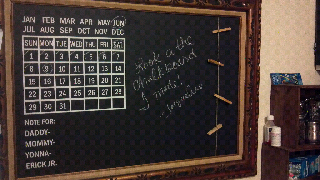 JAN FEB MAR APR MAY JUN
JUL AUG SEP OCT NOV DEC
SUN MON TUE WED THU FRI SAT
1 2 3 4 5 6 7
8 9 10 11 12 13 14
15 16 17 18 19 20 21
22 23 24 25 26 27 28
29 30 31
NOTE FOR:
DADDY-
MOMMY-
YONNA-
ERICK JR.
the
chalkboard
I made!